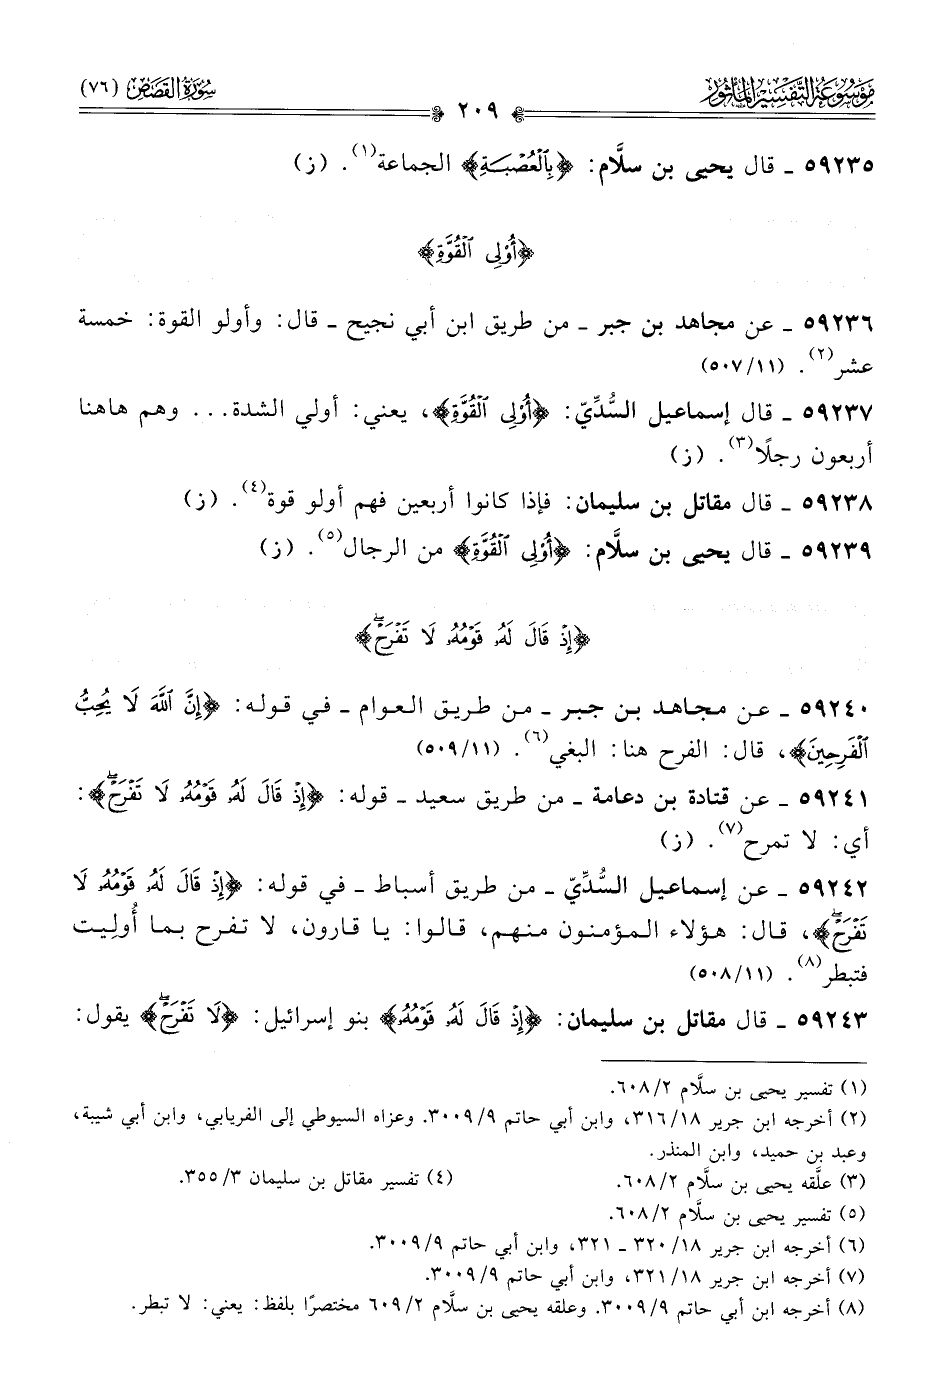 موسوعة التفسير المأثور
سورة القصص (٧٦)
٢٠٩
٥٩٢٣٥ ـ قال يحيى بن سلَّام: ﴿بِٱلۡعُصۡبَةِ﴾ الجماعة(١). (ز)
﴿أُوْلِي ٱلۡقُوَّةِ﴾
٥٩٢٣٦ ـ عن مجاهد بن جبر ـ من طريق ابن أبي نجيح ـ قال: وأولو القوة: خمسة
عشر(٢). (٥٠٧/١١)
٥٩٢٣٧ ـ قال إسماعيل السُّدِّيّ: ﴿أُوْلِي ٱلۡقُوَّةِ﴾، يعني: أولي الشدة... وهم هاهنا
أربعون رجلًا(٣). (ز)
٥٩٢٣٨ ـ قال مقاتل بن سليمان: فإذا كانوا أربعين فهم أولو قوة(٤). (ز)
٥٩٢٣٩ ـ قال يحيى بن سلَّام: ﴿أُوْلِي ٱلۡقُوَّةِ﴾ من الرجال(٥). (ز)
﴿إِذۡ قَالَ لَهُۥ قَوۡمُهُۥ لَا تَفۡرَحۡۖ﴾
٥٩٢٤٠ ـ عن مجاهد بن جبر ـ من طريق العوام ـ في قوله: ﴿إِنَّ ٱللَّهَ لَا يُحِبُّ
ٱلۡفَرِحِينَ﴾، قال: الفرح هنا: البغي(٦). (٥٠٩/١١)
٥٩٢٤١ ـ عن قتادة بن دعامة ـ من طريق سعيد ـ قوله: ﴿إِذۡ قَالَ لَهُۥ قَوۡمُهُۥ لَا تَفۡرَحۡۖ﴾:
أي: لا تمرح(٧). (ز)
٥٩٢٤٢ ـ عن إسماعيل السُّدِّيّ ـ من طريق أسباط ـ في قوله: ﴿إِذۡ قَالَ لَهُۥ قَوۡمُهُۥ لَا
تَفۡرَحۡۖ﴾، قال: هؤلاء المؤمنون منهم، قالوا: يا قارون، لا تفرح بما أُوليت
فتبطر(٨). (٥٠٨/١١)
٥٩٢٤٣ ـ قال مقاتل بن سليمان: ﴿إِذۡ قَالَ لَهُۥ قَوۡمُهُۥ﴾ بنو إسرائيل: ﴿لَا تَفۡرَحۡۖ﴾ يقول:
(١) تفسير يحيى بن سلَّام ٦٠٨/٢.
(٢) أخرجه ابن جرير ٣١٦/١٨، وابن أبي حاتم ٣٠٠٩/٩. وعزاه السيوطي إلى الفريابي، وابن أبي شيبة،
وعبد بن حميد، وابن المنذر.
(٣) علَّقه يحيى بن سلَّام ٦٠٨/٢. (٤) تفسير مقاتل بن سليمان ٣٥٥/٣.
(٥) تفسير يحيى بن سلَّام ٦٠٨/٢.
(٦) أخرجه ابن جرير ٣٢٠/١٨ ـ ٣٢١، وابن أبي حاتم ٣٠٠٩/٩.
(٧) أخرجه ابن جرير ٣٢١/١٨، وابن أبي حاتم ٣٠٠٩/٩.
(٨) أخرجه ابن أبي حاتم ٣٠٠٩/٩. وعلقه يحيى بن سلَّام ٦٠٩/٢ مختصرًا بلفظ: يعني: لا تبطر.